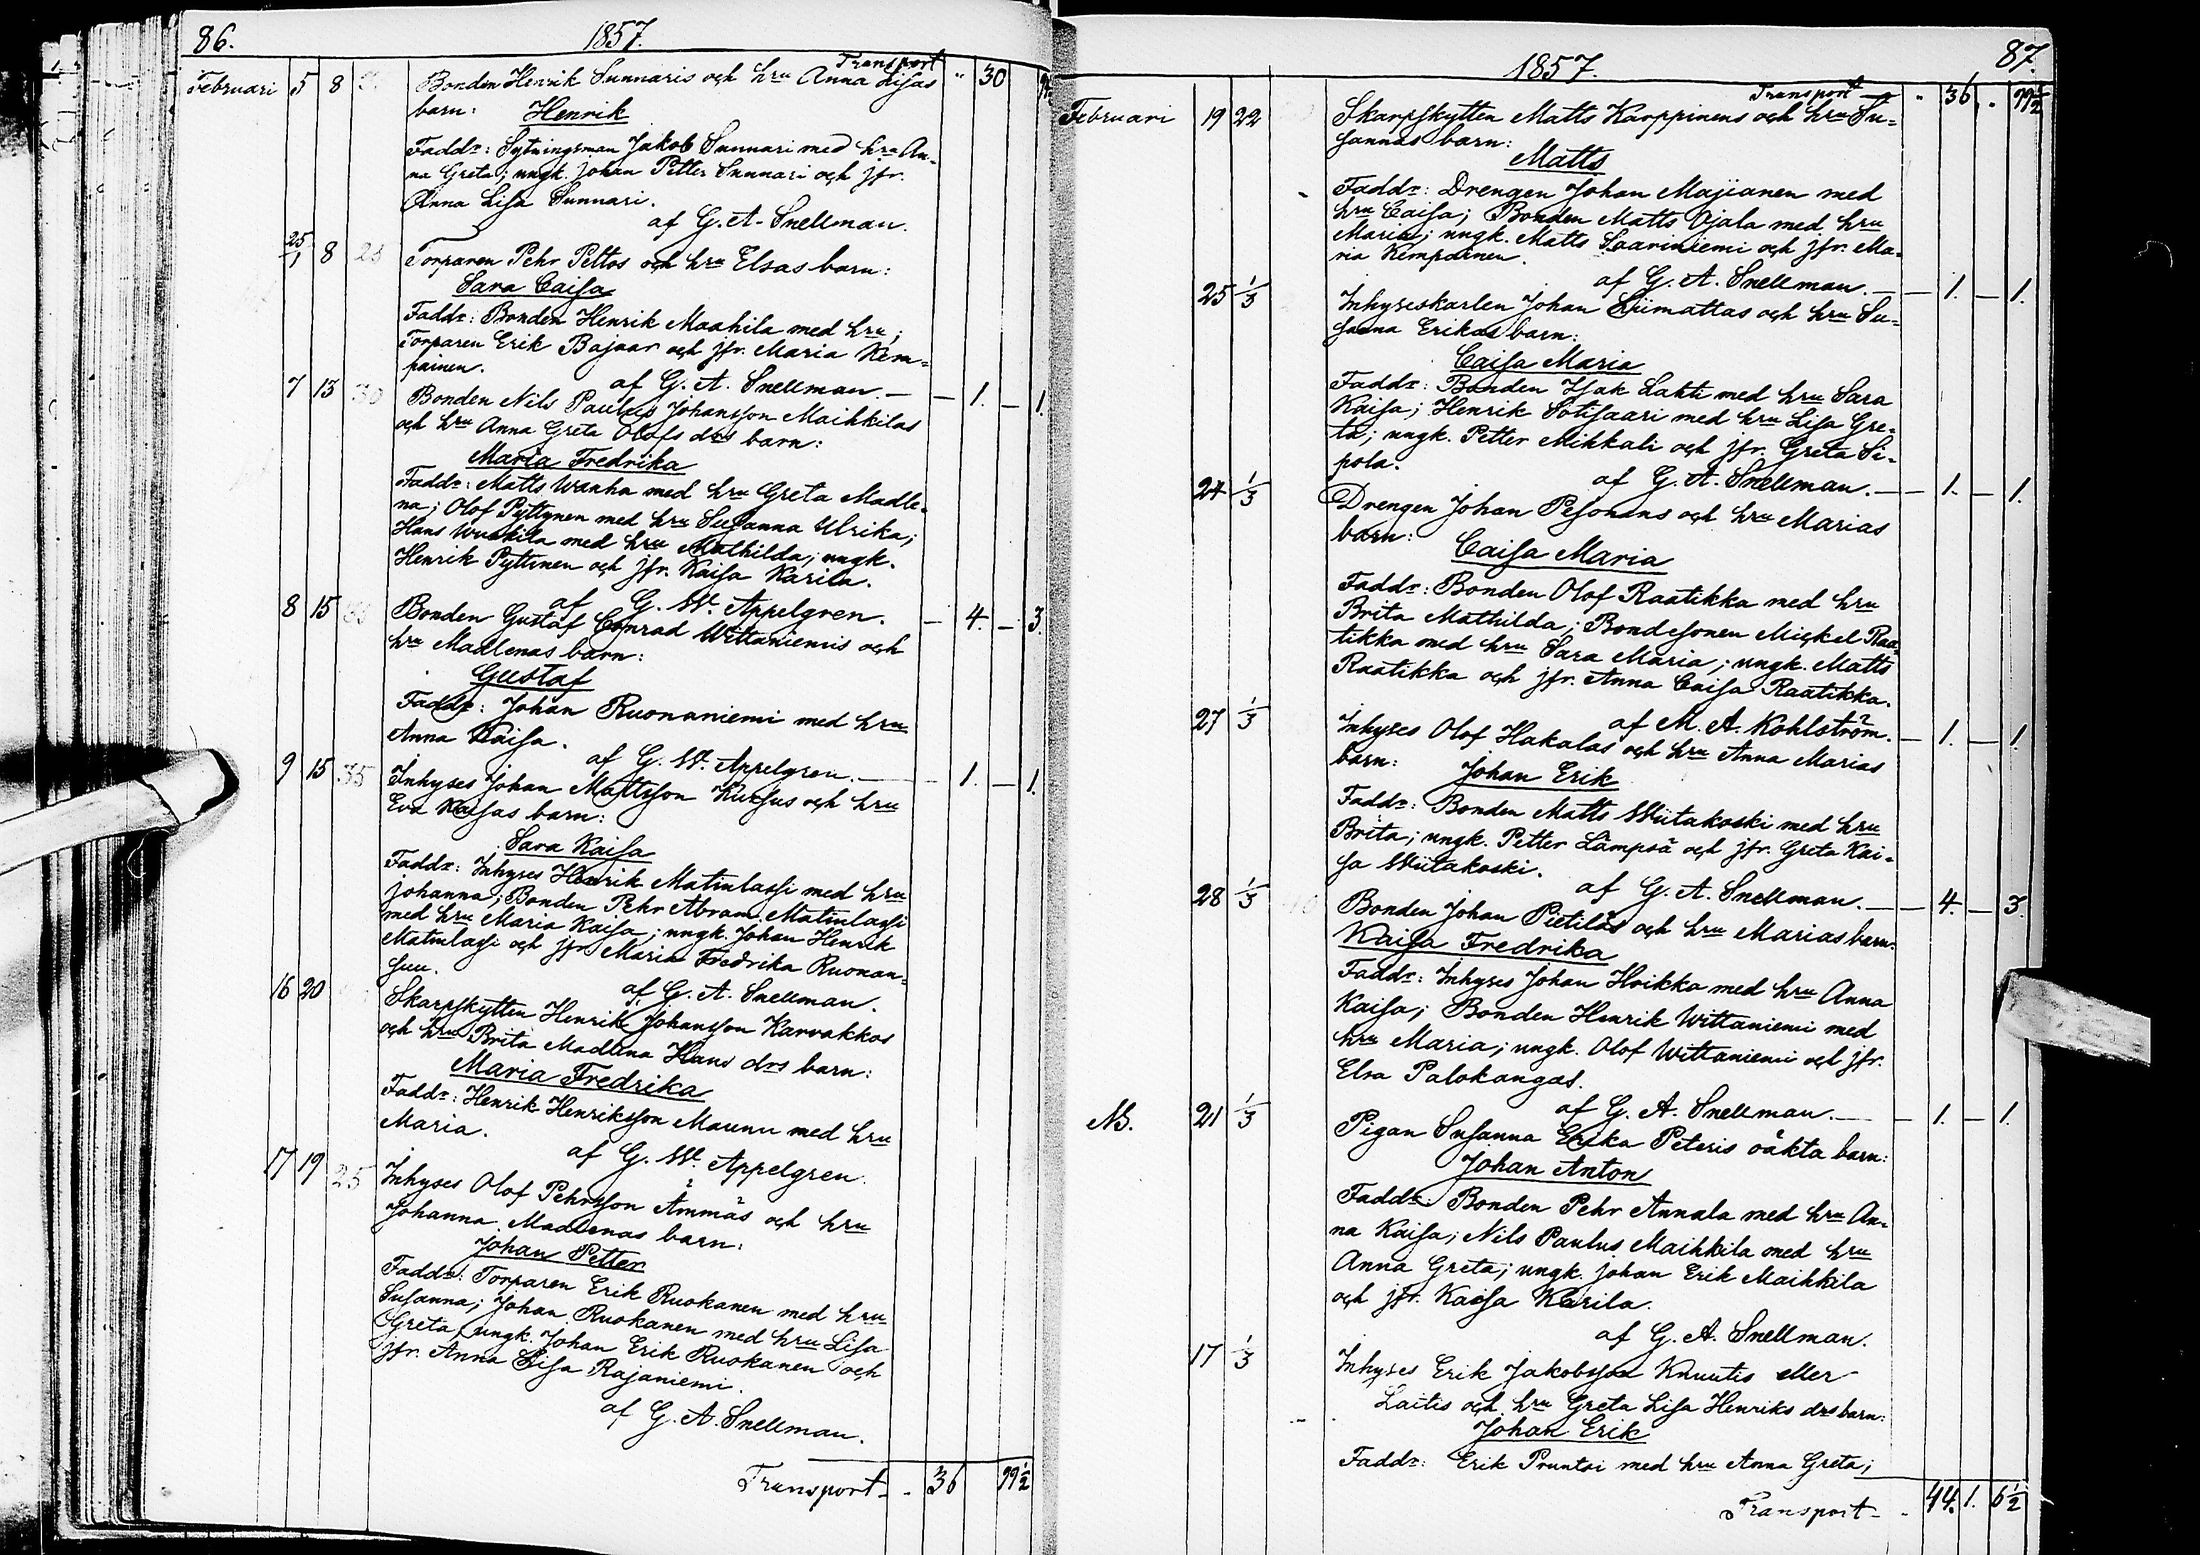 86.
1857.
Transport " 30
Februari 5 8 Bonden Henrik Sunnaris och hru Anna Lisas
barn: Henrik
Faddr: Sytningsman Jakob Sunnari med hru An-
na Greta; ungk. Johan Petter Sunnari och jfr.
Anna Lisa Sunnari.
af G. A. Snellman.
25/1 8 Torparen Pehr Peltos och hru Elsas barn:
Sara Caisa
Faddr: Bonden Henrik Maahila med hru;
Torparen Erik Bajaar och jfr. Maria Kem-
painen.
af G. A. Snellman. — 1. — 1.
7 13 30 Bonden Nils Paulus Johansson Maihkilas
och hru Anna Greta Olofs drs barn:
Maria Fredrika
Faddr: Matts Wanha med hru Greta Madle-
na; Olof Pyttynen med hru Susanna Ulrika;
Hans med hru Mathilda; ungk.
Henrik Pyttynen och jfr. Kaisa Karila.
af G. W. Appelgren. — 4. — 3.
8 15 Bonden Gustaf Conrad Wittaniemis och
hru Madlenas barn:
Gustaf
Faddr: Johan Ruonaniemi med hru
Anna Kaisa.
af G. W. Appelgren. — 1. — 1.
9 15 35 Inhyses Johan Mattsson Kursus och hru
Eva Kaisas barn:
Sara Kaisa
Faddr: Inhyses Henrik Matinlassi med hru
Johanna; Bonden Pehr Abram Matinlassi
med hru Maria Kaisa; ungk. Johan Henrik
Matinlassi och jfr Maria Fredrika Ruonan-
suu.
af G. A. Snellman.
16 20 Skarpskytten Henrik Johansson Karvakkos
och hru Brita Madlena Hans drs barn:
Maria Fredrika
Faddr: Henrik Henriksson Maunu med hru
Maria.
af G. W. Appelgren.
17 19 25 Inhyses Olof Pehrsson Ämmäs och hru
Johanna Madlenas barn:
Johan Petter
Faddr: Torparen Erik Ruokanen med hru
Susanna; Johan Ruokanen med hru Lisa
Greta, ungk. Johan Erik Ruokanen och
jfr. Anna Lisa Rajaniemi.
af G. A. Snellman.
Transport - - 36 99½
87.
1857.
Transport " 36 " 99½
Februari 19 22 Skarpskytten Matts Karppinens och hru Su-
sannas barn:
Matts
Faddr: Drengen Johan Majianen med
hru Caisa; Bonden Matts Ojala med hru
Maria; ungk. Matts Saariniemi och jfr. Ma-
ria Kempainen.
af G. A. Snellman. — 1. — 1.
25 1/3 Inhyseskarlen Johan Liimattas och hru Su-
sanna Erikas barn:
Caisa Maria
Faddr: Bonden Isak Lahti med hru Sara
Kaisa; Henrik Sotisaari med hru Lisa Gre-
ta; ungk. Petter Mikkali och jfr. Greta Si-
pola.
af G. A. Snellman. — 1. — 1.
24 1/3 Drengen Johan Pesonens och hru Marias
barn: Caisa Maria
Faddr: Bonden Olof Raatikka med hru
Brita Mathilda; Bondesonen Mickel Raa-
tikka med hru Sara Maria; ungk. Matts
Raatikka och jfr. Anna Caisa Raatikka.
af M. A. Kohlström. — 1. — 1.
27 1/3 Inhyses Olof Hakalas och hru Anna Marias
barn: Johan Erik
Faddr: Bonden Matts Wiitakoski med hru
Brita; ungk. Petter Lämpsä och jfr. Greta Kai-
sa Wiitakoski.
af G. A. Snellman. — 4. — 3.
28 1/3 Bonden Johan Pietiläs och hru Marias barn:
Kaisa Fredrika
Faddr: Inhyses Johan Hoikka med hru Anna
Kaisa; Bonden Henrik Wittaniemi med
hru Maria; ungk. Olof Wittaniemi och jfr.
Elsa Palokangas.
af G. A. Snellman. — 1. — 1.
NB. 21 1/3 Pigan Susanna Erika Peteris oäkta barn:
Johan Anton
Faddr: Bonden Pehr Annala med hru An-
na Kaisa; Nils Paulus Maihkila med hru
Anna Greta; ungk. Johan Erik Maihkila
och jfr. Kaisa Karila.
af G. A. Snellman.
17 1/3 Inhyses Erik Jakobsson Knuutis eller
Laitis och hru Greta Lisa Henriks drs barn:
Johan Erik
Faddr: Erik Pruntsi med hru Anna Greta;
Transport - - 44. 1. 6½